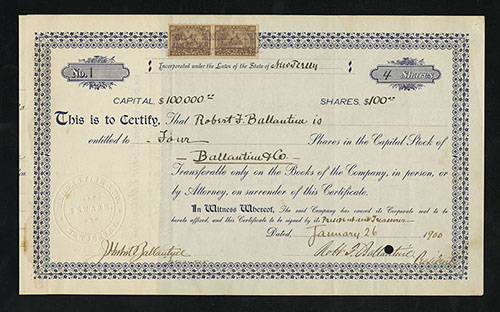 No. 1
Incorporated under the Laws of the State of New Jersey
4 Shares
CAPITAL $ 100,000.00
SHARES $100.00
This is to Certify, That Robert F. Ballantine is
entitled to Four Shares in the Capital Stock of
Ballantine & Co.
Transferable only on the Books of the Company, in person, or
by Attorney, on surrender of this Certificate.
In Witness Whereof, The said Company has caused its Corporate seal to be
hereto affixed, and this Certificate to be signed by its President and Treasurer
Dated, January 26 1900
Ballantine
Robt F. Ballantine
President